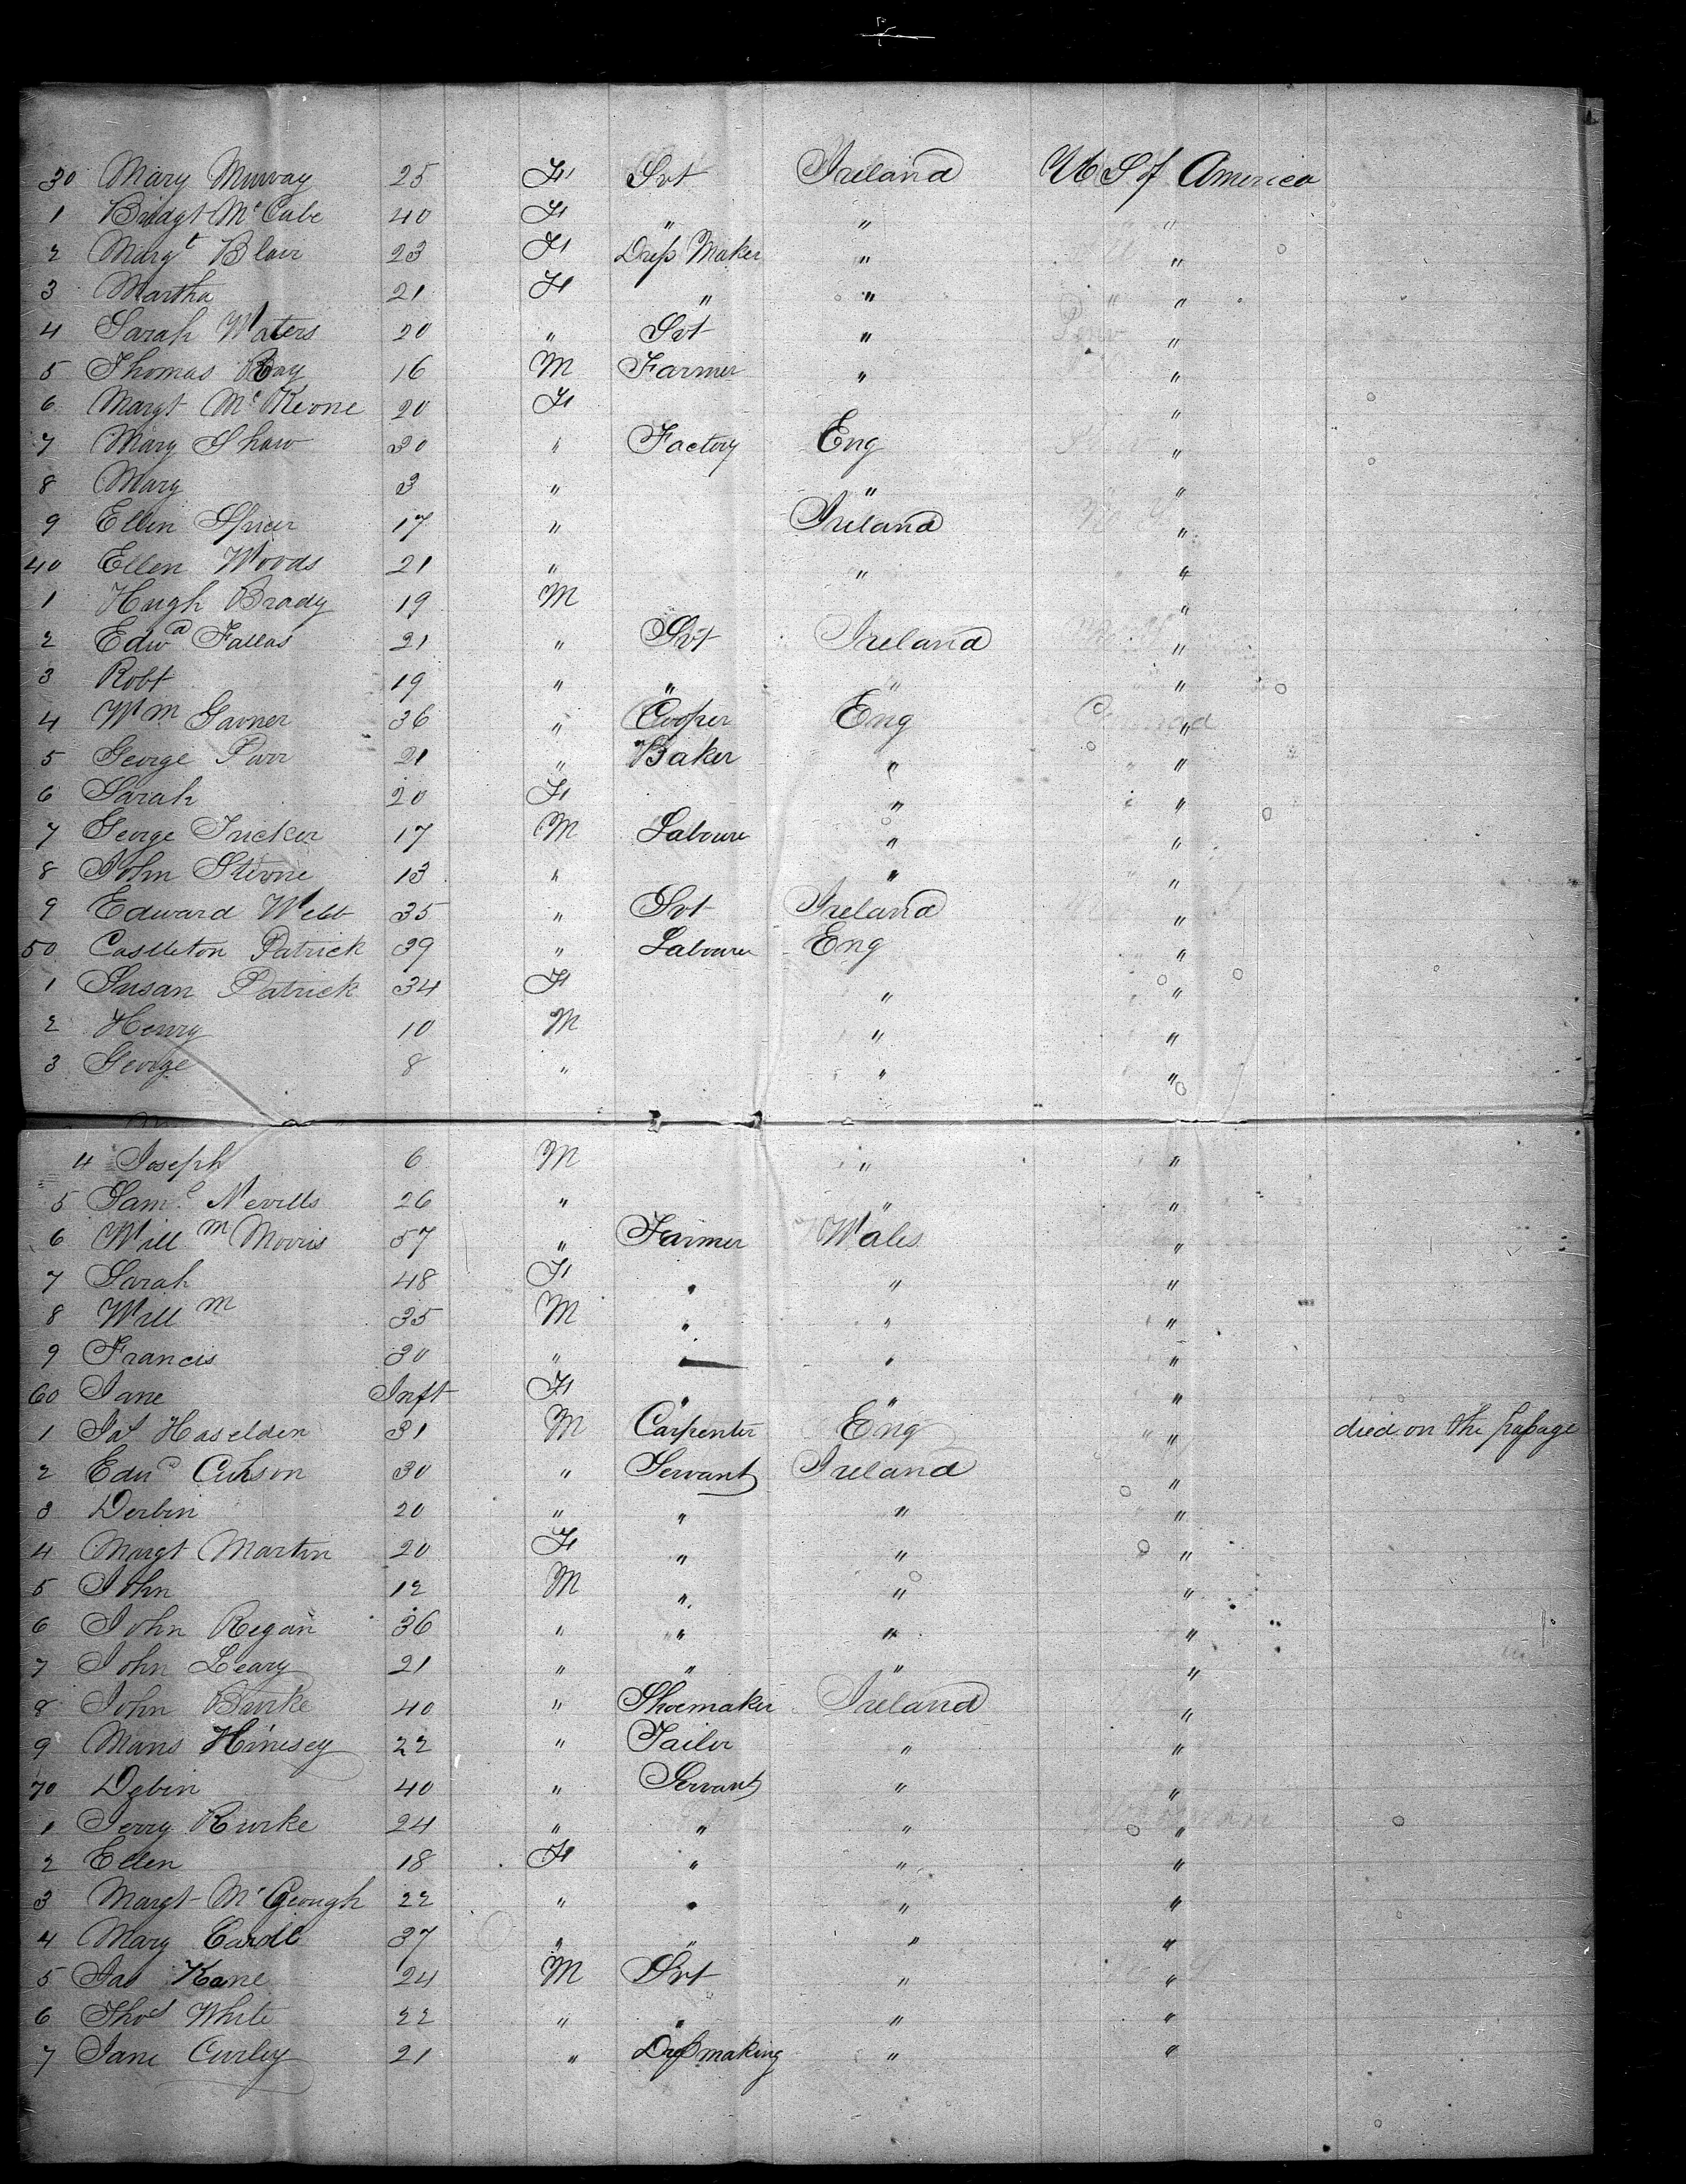 30 Mary Murray 25 F Svt Ireland U S of America
1 Bridgt McCabe 40 F " " "
2 Margt Blair 23 F Dress Maker " "
3 Martha 21 F " " "
4 Sarah Waters 20 " Svt " "
5 Thomas Ray 16 M Farmer " "
6 Margt McKeone 20 F "
7 Mary Shaw 30 " Factory Eng "
8 Mary 3 " " "
9 Ellen 17 " Ireland "
40 Ellen Woods 21 " " "
1 Hugh Brady 19 M "
2 Edwd Fallas 21 " Svt Ireland "
3 Robt 19 " " " "
4 Wm Garner 36 " Cooper Eng "
5 George Parr 21 " Baker " "
6 Sarah 20 F " "
7 George Tucker 17 M Labourer " "
8 John Stevne 13 " " "
9 Edward Webb 35 " Svt Ireland "
50 Castleton Patrick 39 " Labourer Eng "
1 Susan Patrick 34 F " "
2 Henry 10 M " "
3 George 8 " " "
4 Joseph 6 M " "
5 Saml Nevills 26 " " "
6 Willm Morris 57 " Farmer Wales "
7 Sarah 48 F " " "
8 Willm 35 M " " "
9 Francis 30 " " "
60 Jane Inft F " " "
1 Jas Haselden 31 M Carpenter Eng " died on the passage
2 Edwd 30 " Servant Ireland "
3 Derbin 20 " " " "
4 Margt Martin 20 F " " "
5 John 12 M " " "
6 John Regan 36 " " " "
7 John Leary 21 " " " "
8 John Burke 40 " Shoemaker Ireland "
9 Mans Hinesey 22 " Tailor " "
70 Debin 40 " Servant " "
1 Jerry Rurke 24 " " " "
2 Ellen 18 F " " "
3 Margt McGeough 22 " " " "
4 Mary Caroll 37 " " " "
5 Jas Kane 24 M Svt " "
6 Thos White 22 " " " "
7 Jane Curley 21 " Dressmaking " "